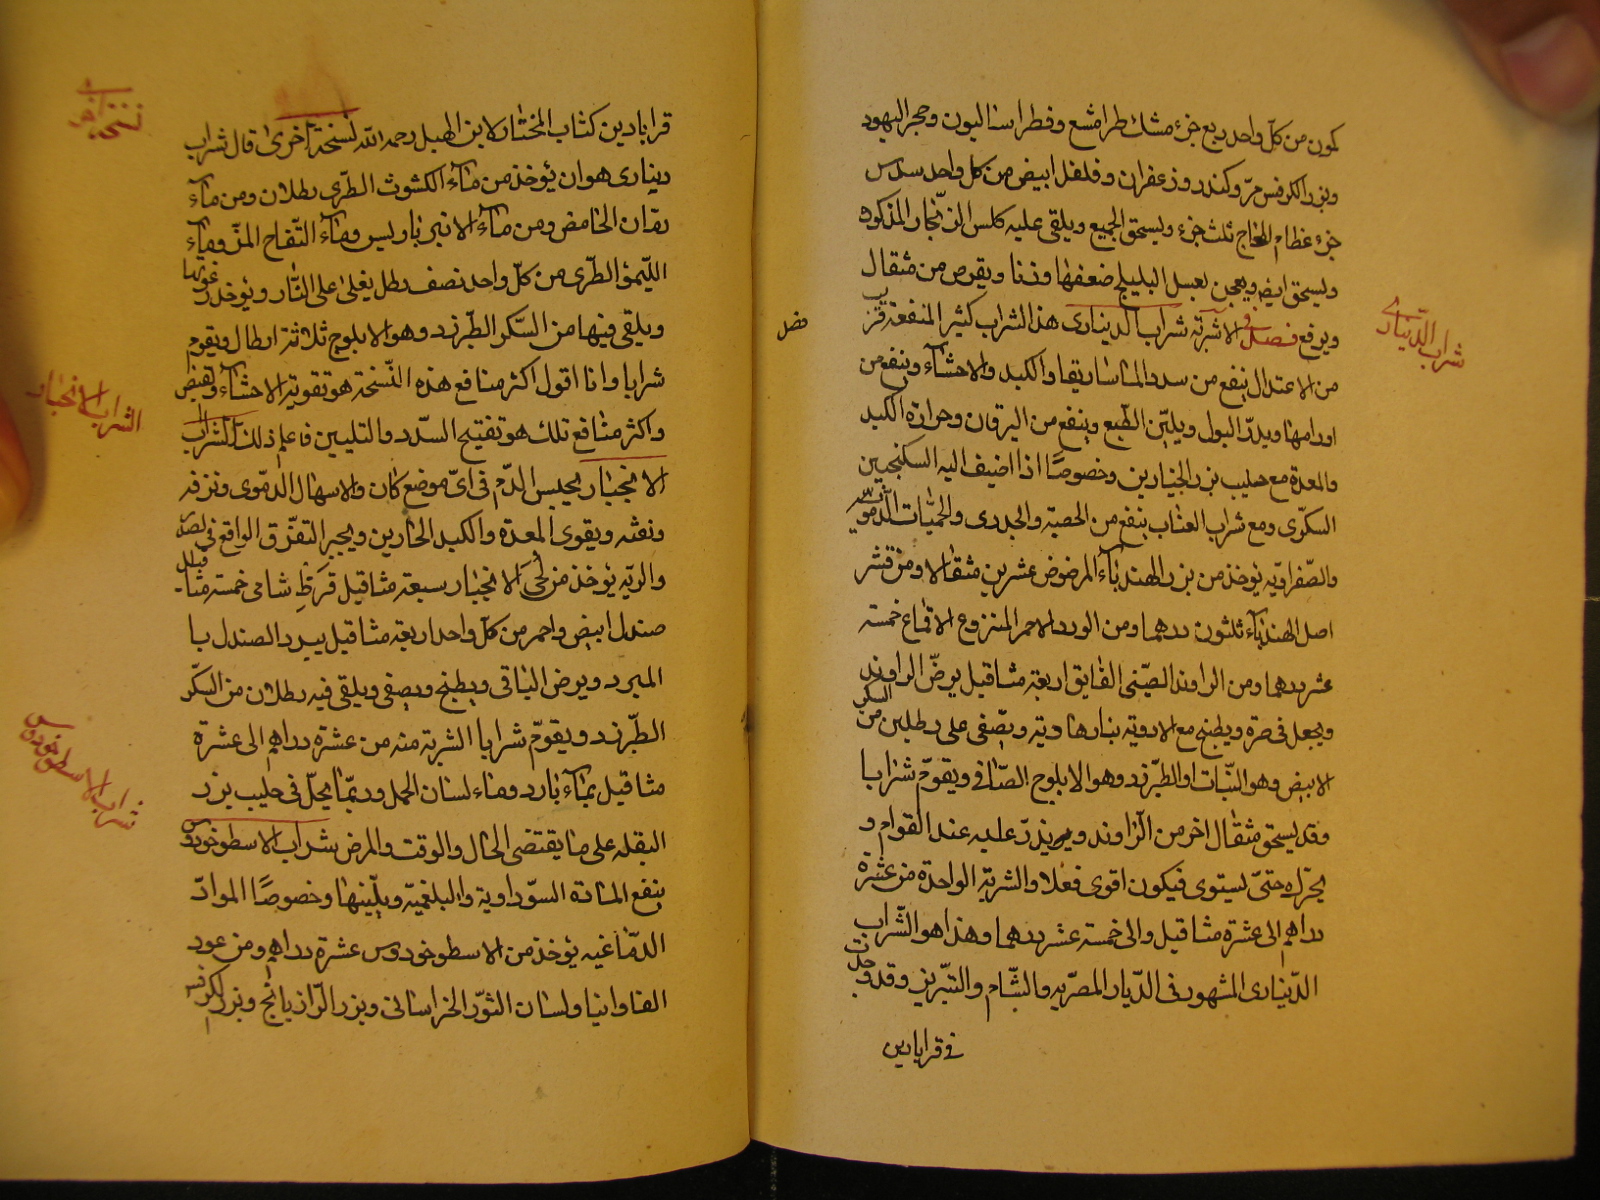 كمون من كل واحد ربع جزء مشك طرامشع وفطراساليون وحجر اليهود
وبزر الكرفس مرّ وكندر وزعفران وفلفل ابيض من كل واحد سدس
جزء عظام ثلث جزء ويسحق الجميع ويلقى عليه كلس الزنجار المذكور
ويسحق ايضا ويعجن بعسل البليلج ضعفها وزنا ويقرص من مثقال
ويرفع فصل في الاشربة شراب الدينارى هذا الشراب كثير المنفعة قريب
من الاعتدال ينفع من سدد الماساريقا والكبد والاحشاء وينفع من
اورامها ويدرّ البول ويليّن الطبع وينفع من اليرقان وحرارة الكبد
والمعدة مع حليب بزر الخيارين وخصوصًا اذا اضيف اليه السكنجبين
السكّرى ومع شراب العناب ينفع من الحصبة والجدرى والحميات الدموية
والصّفراويه يؤخذ من بزر الهندباء المرضوض عشرين مثقالا ومن قشر
اصل الهندباء ثلثون درهما ومن الورد الاحمر المنزوع الاقماع خمسة
عشر درهما ومن الراوند الصّينى الفايق اربعة مثاقيل يرضّ الراوند
ويجعل فى صرة ويطبخ مع الادوية بنار هادية ويصّفى على رطلين من السكر
الابيض وهو النّبات او الطبّرزد وهو الابلوج الصّافى ويقوّم شرابا
وقد يسحق مثقال اخر من الرّاوند ويذرّ عليه عند القوام و
يحرّك حتىّ يستوى فيكون اقوى فعلا والشربة الواحدة من عشرة
دراهم الى عشرة مثاقيل والى خمسة عشر درهما وهذا هو الشّراب
الدّينارى المشهور فى الدّيار المصريه والشّام والتّبريز وقد وجدت
فى قرابادين
شراب الدّينارى
فصل
قرابادين كتاب المختار لابن الهبل رحمه الله نسخة اخرى قال شراب
دينارى هو ان يؤخذ من ماء الكشوث الطّرى رطلان ومن ماء
رمان الحامض ومن ماء الانبرباريس وماء التّفاح المزّ وماء
اللّيمو الطّرى من كلّ واحد نصف رطل يغلى على النّار ويؤخذ رغوتها
ويلقى فيها من السّكر الطّبرزد وهو الابلوج ثلاثة ارطال ويقوم
شرابا وانا اقول اكثر منافع هذه النّسخة هو تقوية الاحشاء وتقبض
واكثر منافع تلك هو تفتيح السّدد والتليين فاعلم ذلك الشراب
الانجبار يحبس الدّم فى اىّ موضع كان والاسهال الدّموى ونزفه
ونفثه ويقوى المعدة والكبد الحارين ويجبر التفرّق الواقع فى الصدر
والريّه يؤخذ من لحى الانجبار سبعة مثاقيل قرظ شامى خمسة مثاقيل
صندل ابيض واحمر من كلّ واحد اربعة مثاقيل يبرد الصندل با
المبرد ويرض الباقى ويطبخ ويصفى ويلقى فيه رطلان من السكّر
الطّبرزد ويقوّم شرابا الشربة منه من عشرة دراهم الى عشرة
مثاقيل بماء بارد وماء لسان الحمل وربمّا يحلّ فى حليب بزر
البقله على ما يقتضى الحال والوقت والمرض شراب الاسطوخودوس
ينفع المادة السّوداوية والبلغميّه ويليّنها وخصوصًا الموادّ
الدّماغيه يؤخذ من الاسطوخودوس عشرة دراهم ومن عود
الفاوانيا ولسان الثوّر الخراسانى وبزر الرّازيانج وبزر الكرفس
نسخة اخرى
الشراب الانجبار
شراب الاسطوخودوس